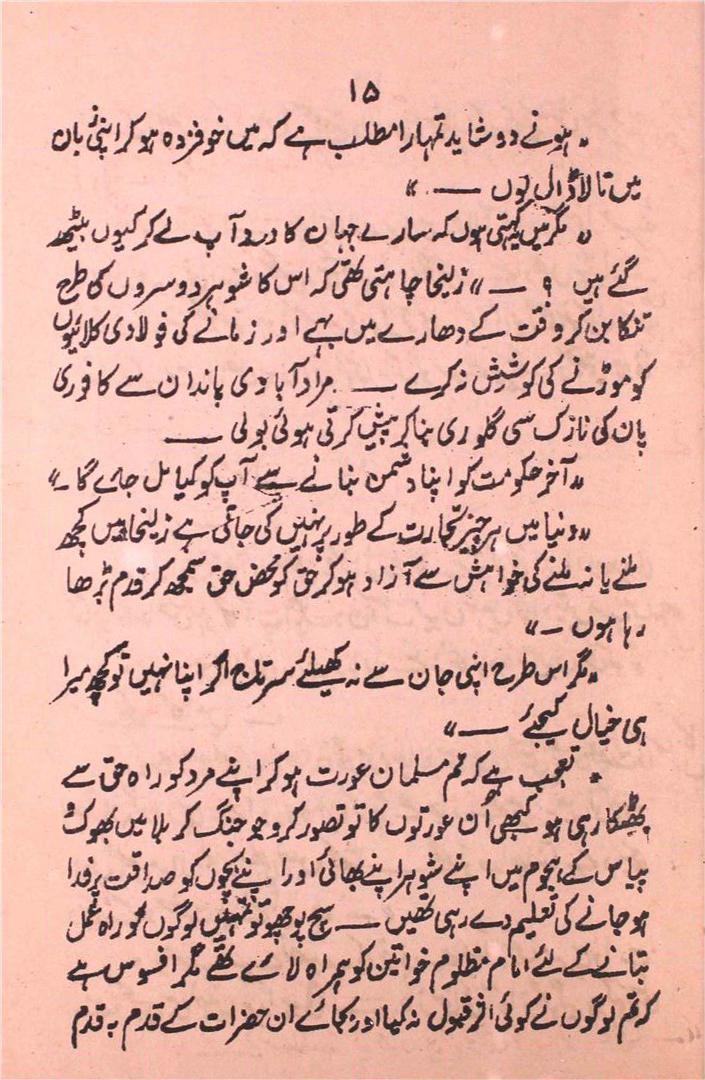 ۱۵
"ہونے دو شاید تمہارا مطلب ہے کہ میں خوفزدہ ہو کر اپنی زبان
میں تالا ڈال لوں ـــــ"
"مگر میں کہتی ہوں کہ سارے جہان کا درد آپ لے کر کیوں بیٹھ
گئے ہیں ؟ ـــــ" زلیخا چاہتی تھی کہ اس کا شوہر دوسروں کی طرح
تنکا بن کر وقت کے دھارے میں بہے اور زمانے کی فولادی کلائیوں
کو موڑنے کی کوشش نہ کرے ـــــ مرادآبادی پاندان سے کافوری
پان کی نازک سی گلوری بنا کر پیش کرتی ہوئی بولی ـــــ
"آخر حکومت کو اپنا دشمن بنانے سے آپ کو کیا مل جائے گا۔"
"دنیا میں ہر چیز تجارت کے طور پر نہیں کی جاتی ہے زلیخا میں کچھ
ملنے یا نہ ملنے کی خواہش سے آزاد ہو کر حق کو محض حق سمجھ کر قدم بڑھا
رہا ہوں ۔"
"مگر اس طرح اپنی جان سے نہ کھیلئے سرتاج اگر اپنا نہیں تو کچھ میرا
ہی خیال کیجئے ـــــ"
"تعجب ہے کہ تم مسلمان عورت ہو کر اپنے مرد کو راہ حق سے
بھٹکا رہی ہو کبھی اُن عورتوں کا تو تصور کرو جو جنگ کربلا میں بھوک و
پیاس کے ہجوم میں اپنے شوہر اپنے بھائی اور اپنے بچوں کو صداقت پر فدا
ہو جانے کی تعلیم دے رہی تھیں ـــــ سچ پوچھو تو تمہیں لوگوں کو راہ عمل
بتانے کے لئے امام مظلوم خواتین کو ہمراہ لائے تھے مگر افسوس ہے
کہ تم لوگوں نے کوئی اثر قبول نہ کیا اور بجائے ان حضرات کے قدم بہ قدم